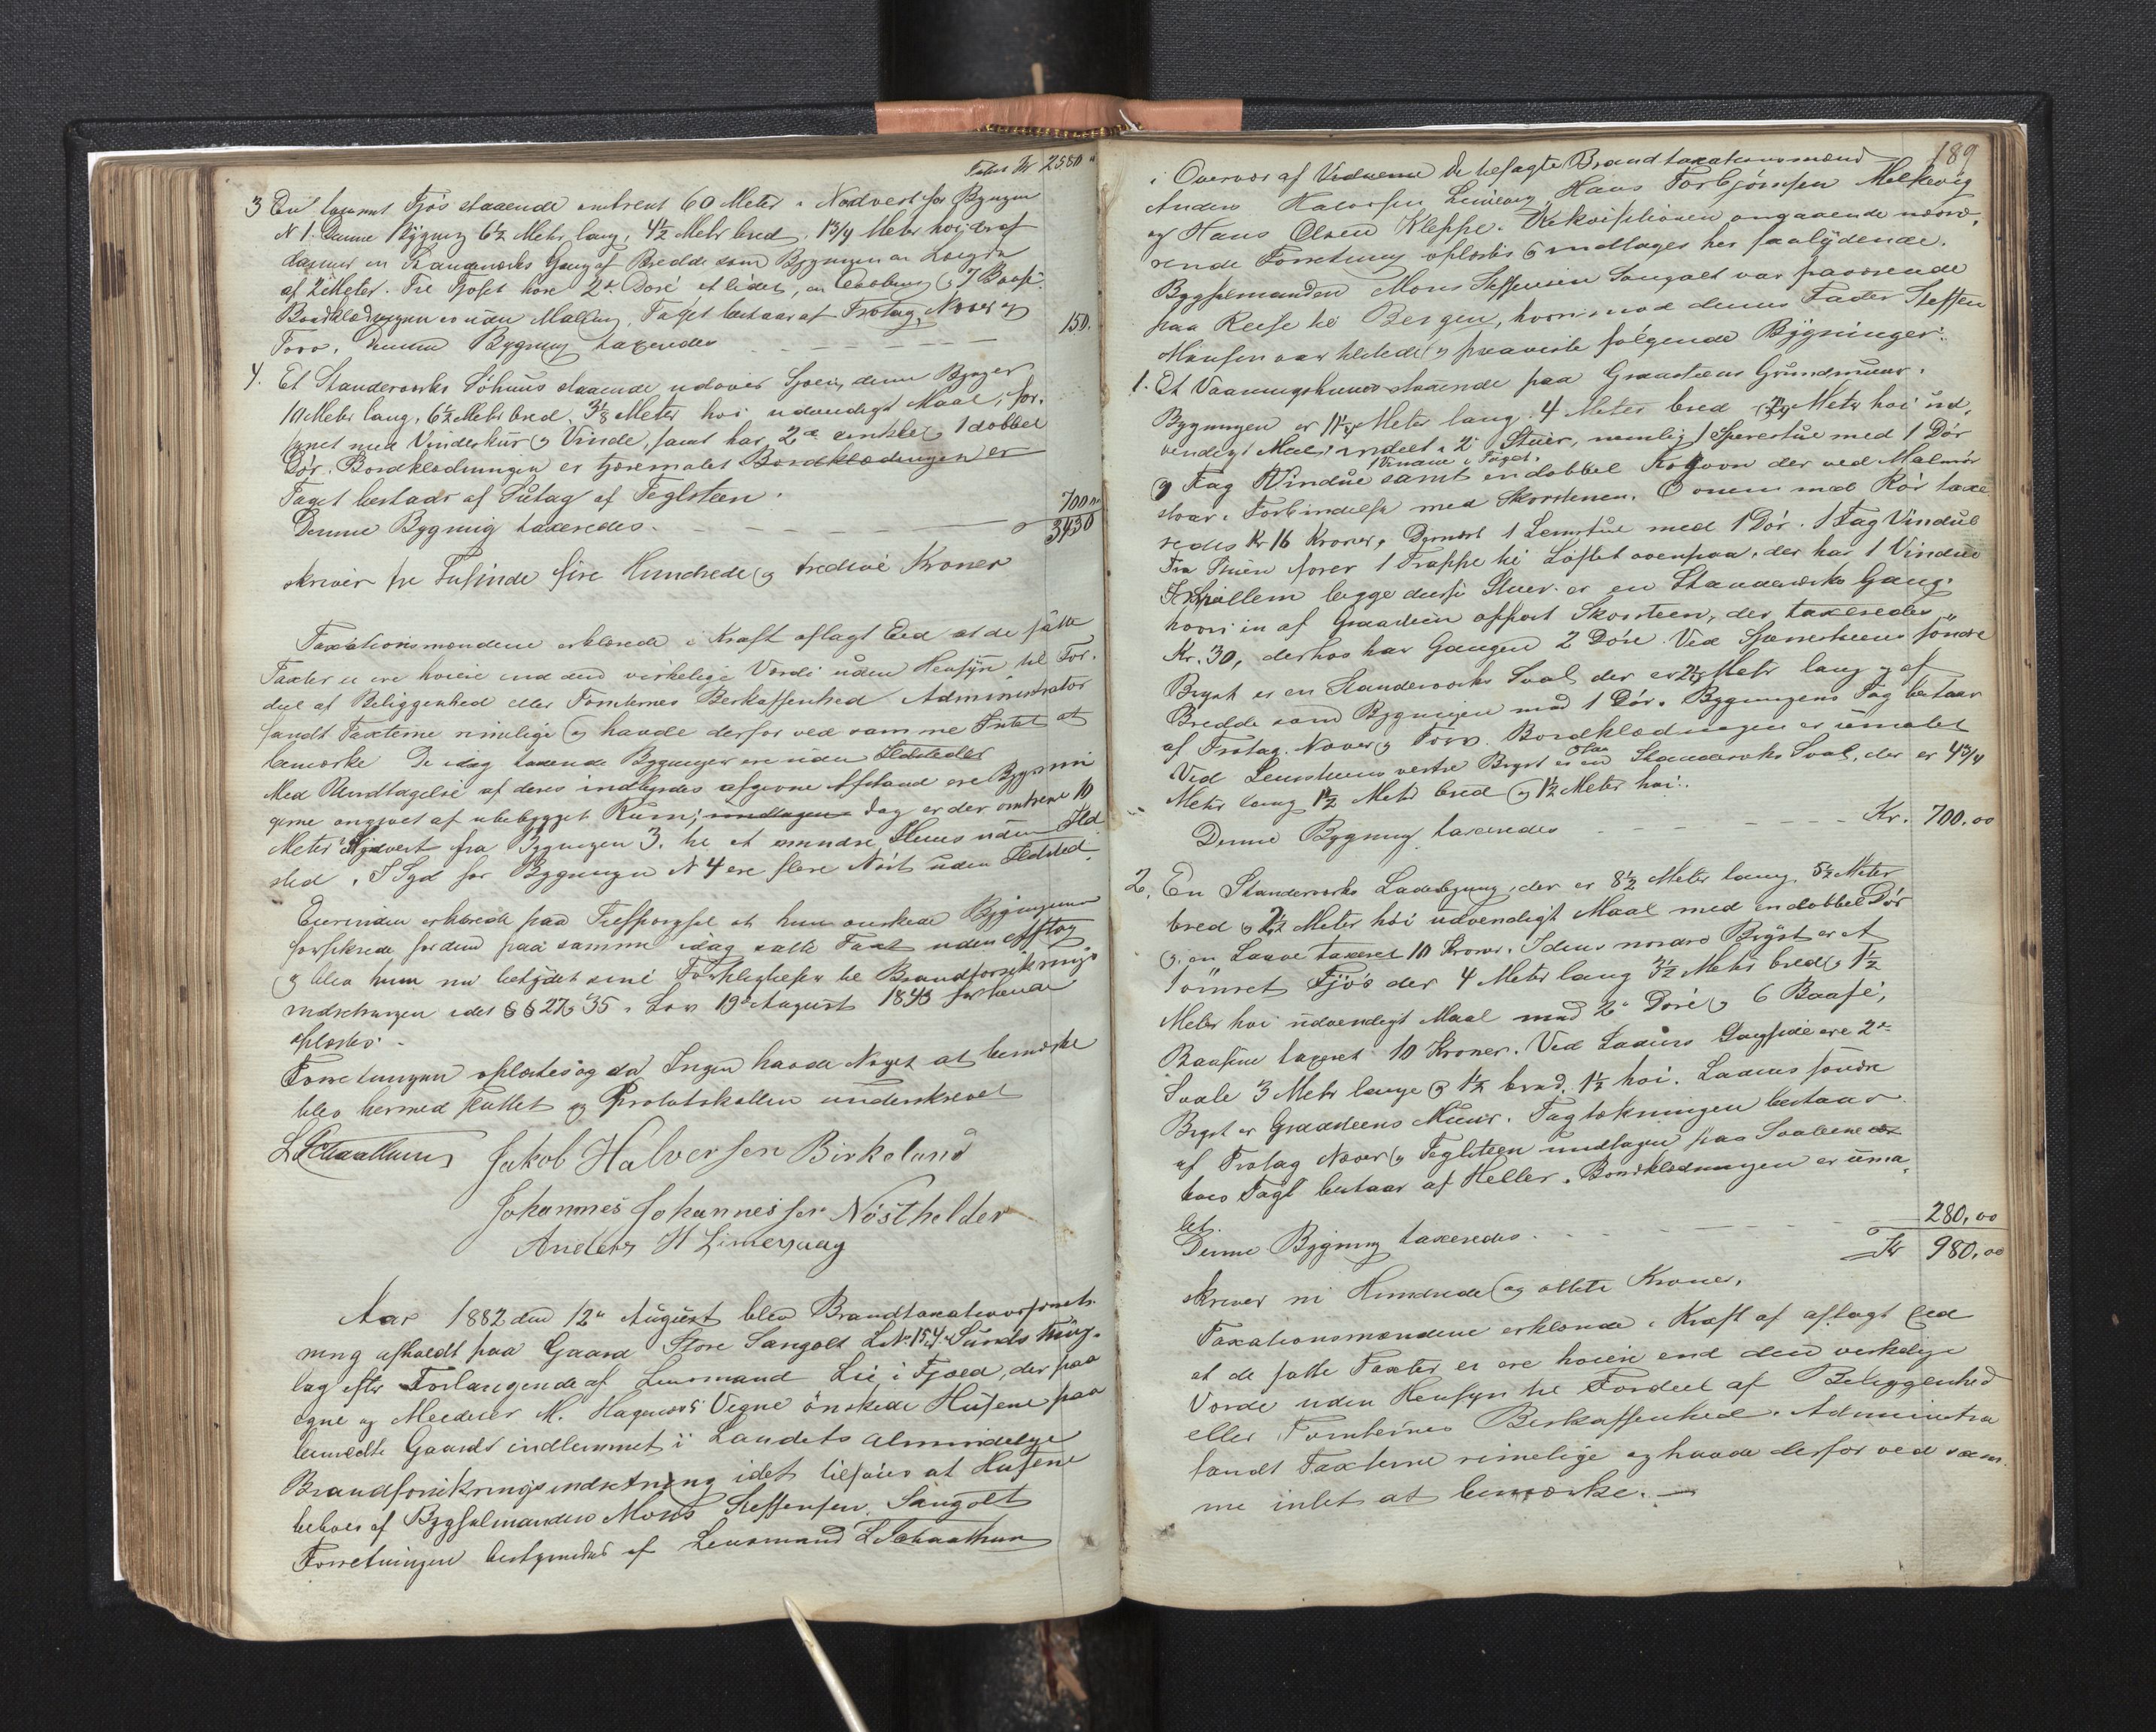 Kr 2580 "
3 En tømret Fjøs staaende omtrent 60 Meter i Nordvest for Bygngen
N 1. Denne Bygning 6½ Meter lang, 4½ Meter bred, 1¾ Meter høi, deraf
en Standværks Gang af Bredde som Bygningen en Længde
af 2 Meter. Til Fjøset hører 2de Døre et lidet, 7 Baase
Bordklædningen er uden Malling, Taget bestaar af Trotag, Næver og
Torv. Denne Bygning taxeredes 150.
4. Et Standværks Søhuus staaende udover Sjøen, denne Bygnger
10 Meter lang, 6½ Meter bred, 3⅛ Meter høi udvendigt Maal, for-
synet med Vindeskur og Vinde, samt har 2de enkelte 1 dobbel
Dør. Bordklædningen er tjæremalet Bordklædningen er
Taget bestaar af Sutag af Teglsteen.
Denne Bygning taxeredes 700 00
3430
skriver tre Tusinde fire Hundrede og tredive Kroner
Taxationsmændene erklærede i Kraft aflagt Eed at de satte
Taxter ei ere høiere end den virkelige Værdi uden Hensyn til For-
deel af Beliggenhed eller Tomternes Beskaffenhed. Administrator
fandt Taxterne rimelige og havde derfor ved samme Intet at
bemærke. De idag taxerede Bygninger ere uden Ildsteder
Med Undtagelse af deres indbyrdes afgivne Afstand ere Bygnin
gerne omgivet af ubebygget Rum; undtagen dog er der omtrent 10
Meter Sydvest fra Bygningen 3. til et mindre Huus uden Ild-
sted. I Syd for Bygningen N 4 ere flere Nøst uden Ildsted.
Eierinden erklærede paa Tilspørgsel at hun ønskede Bygningerne
forsikrede for den paa samme idag satte Taxt uden Afslag
og blev hun nu betydet sine Forpligtelser til Brandforsikrings-
indretningen idet §§ 27 og 35 i Lov 19de August 1845 forhende
oplæstes.
Forretningen oplæstes og da Ingen havde Noget at bemærke
blev hermed sluttet og Protokollen underskrevet
L Schaathun Jakob Halversen Birkeland
Johannes Johannessen Nøsthelder
Anders H Limesvaag
Aar 1882 den 12te August blev Brandtaxationsforret-
ning afholdt paa Gaard Store Sangolt L. N. 154 i Sunds Thing-
lag efter Forlangende af Lensmand Lie i Fjæld, der paa
egne og Medeier M. Hagenæs' Vegne ønskede Husene paa
bemeldte Gaard indlemmet i Landets almindelige
Brandforsikringsindretning idet tilføies at Husene
beboes af Bygselmanden Mons Steffensen Sangolt
Forretningen bestyredes af Lensmand L Schaathun
189
i Overvær af Vidnerne De befagte Brandtaxationsmænd
Anders Halversen Limesvaag, Hans Torbjørnsen Melkevig
og Hans Olsen Kleppe. Rekvisitionen angaaende nærvæ-
rende Forretning oplæstes og indtages her saalydende.
Bygselmanden Mons Steffensen Sangolt var fraværende
paa Reise til Bergen, hvorimod dennes Fader Steffen
Monsen var tilstede og paaviste følgende Bygninger:
1. Et Vaaningshuus staaende paa Graasteens Grundmuur.
Bygningen er 11¼ Meter lang 4 Meter bred 2¼ Meter høi ud-
vendigt Maal; inddelt i 2de Stuer, nemlig 1 Sperrestue med 1 Dør
1 Vindue i Taget.
og Fag Vindue samt en dobbel Kogovn der ved Malmrør
staar i Forbindelse med Skorstenen. Ovnen med Rør taxe
redes Kr 16 Kroner. Dernæst 1 Lemstue med 1 Dør. 1 Fag Vindue
Fra Stuen fører 1 Trappe til Loftet ovenpaa, der har 1 Vindue
Imellem begge disse Stuer er en Standværks Gang.
hvori en af Graasteen opført Skorsteen, der taxeredes
Kr. 30, derhos har Gangen 2 Døre. Ved Sperrestuens søndre
Bryst er en Standværks Sval der er 2¼ Meter lang og af
Bredde som Bygningen med 1 Dør. Bygningens Tag bestaar
af Trotag Næver og Torv. Bordklædningen er umalet
Ved Lemstuens vestre Bryst er en Standværks Sval, der er 4¾
Meter lang 1½ Meter bred og 1½ Meter høi.
Denne Bygning taxeredes Kr. 700.00
2. En Standværks Ladebygning, der er 8½ Meter lang, 5½ Meter
bred og 2½ Meter høi udvendigt Maal med en dobbel Dør
og en Laave taxeret 10 Kroner. I dens nordre Bryst er et
tømret Fjøs der 4 Meter lang 3½ Meter bred og 1½
Meter høi udvendigt Maal med 2de Døre og 6 Baase,
Baasene taxeret 10 Kroner. Ved Ladens Langside ere 2de
Svale 3 Meter lange og 1½ bred, 1½ høi. Ladens søndre
Bryst er Graasteens Muur. Tagtækningen bestaar
af Trotag Næver og Teglsteen undtagen paa Svalene
hvis Tag bestaar af Heller. Bordklædningen er uma-
let.
Denne Bygning taxeredes 280.00
Kr 980.00
skriver ni Hundrede og otteti Kroner.
Taxationsmændene erklærede i Kraft af aflagt Eed
at de satte Taxter ei ere høiere end den verkelige
Værdi uden Hensyn til Fordeel af Beliggenhed
eller Tomternes Beskaffenhed. Administra
fandt Taxterne rimelige og havde derfor ved sam-
me intet at bemærke. —